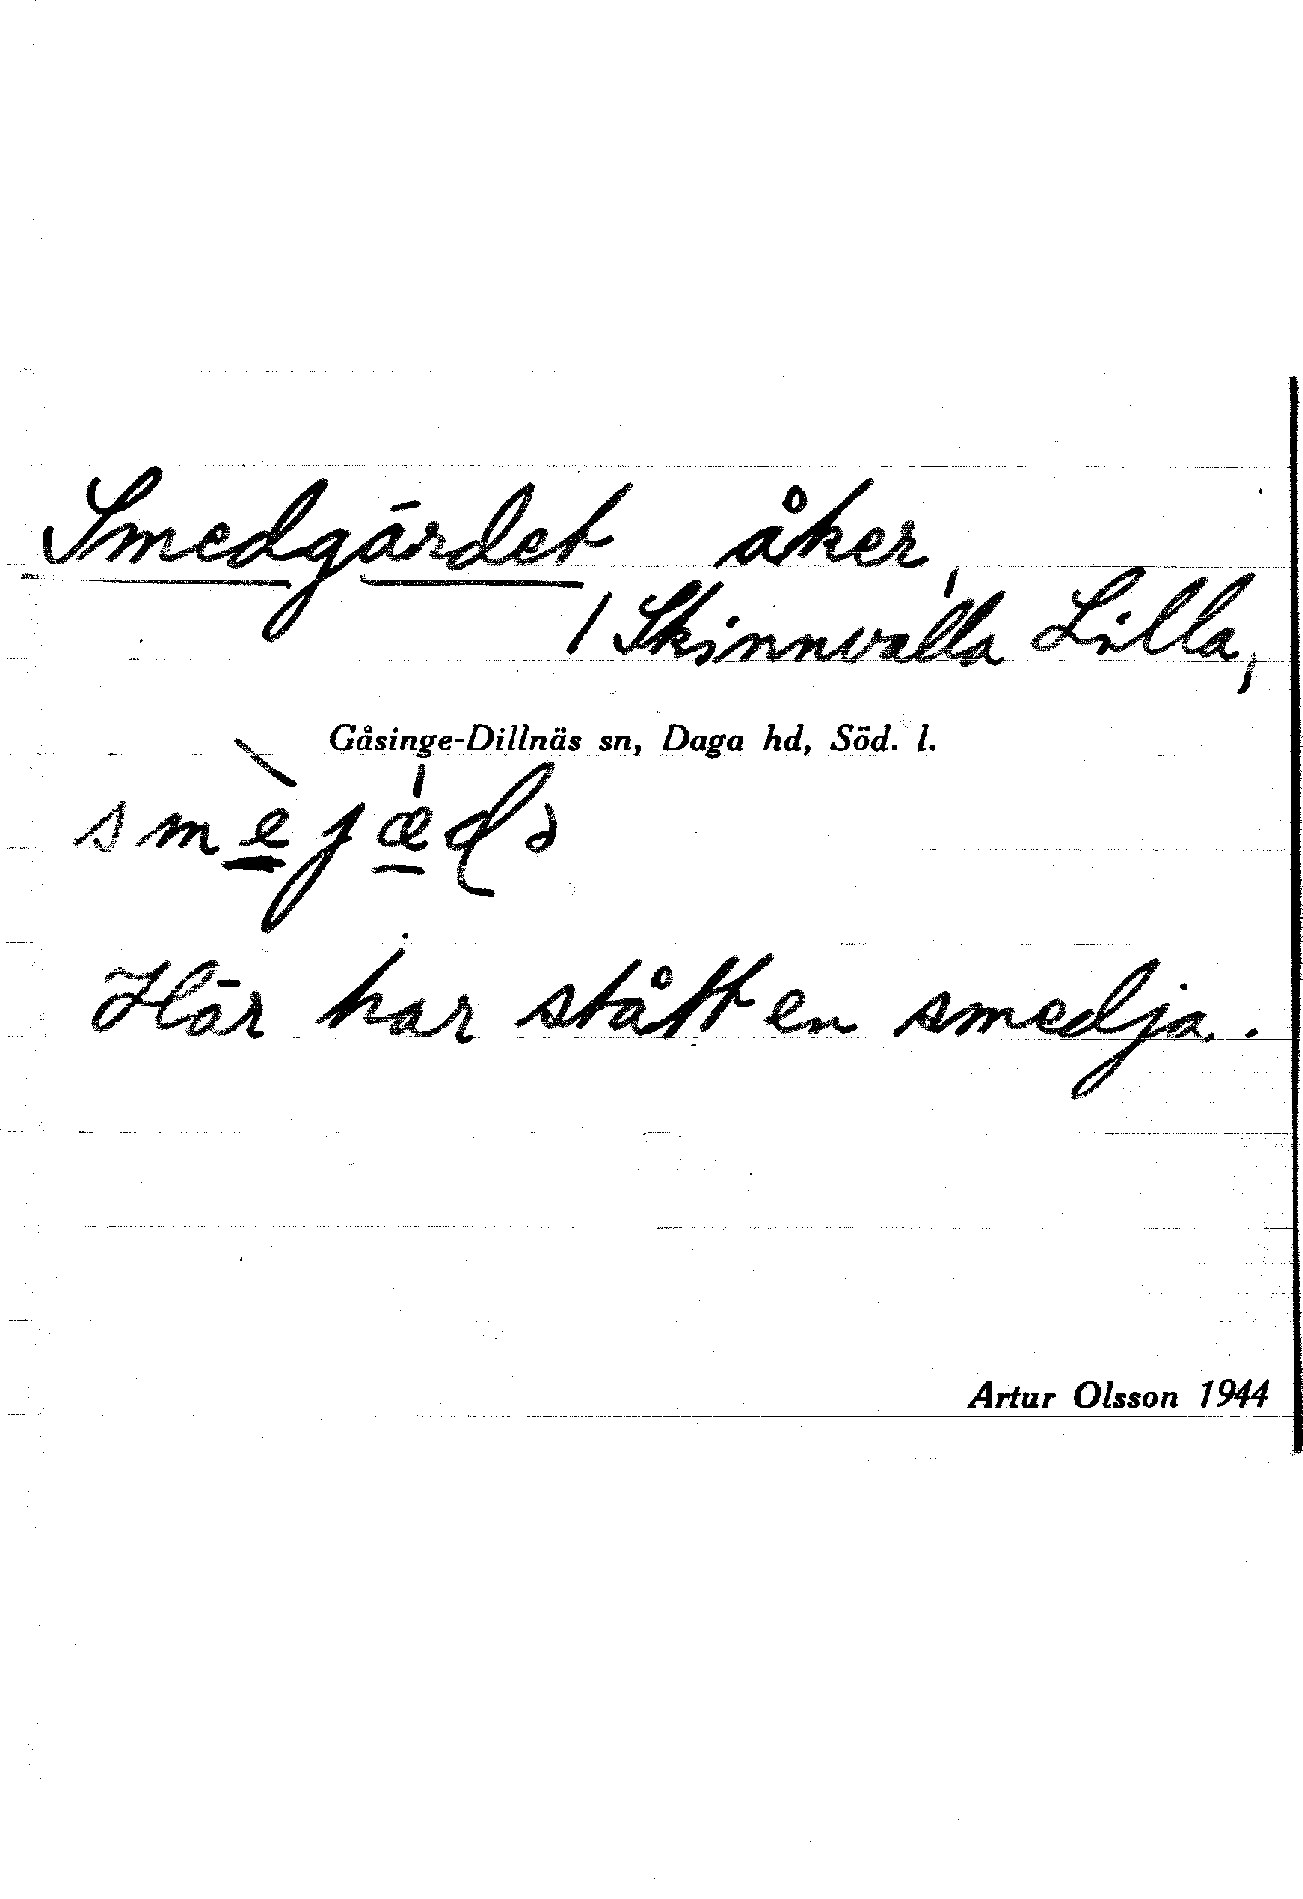 Smedgärdet åker,
/ Skinnvalla Lilla,
Gåsinge-Dillnäs sn, Daga hd, Söd. l.
smèjædə
Här har stått en smedja.
Artur Olsson 1944